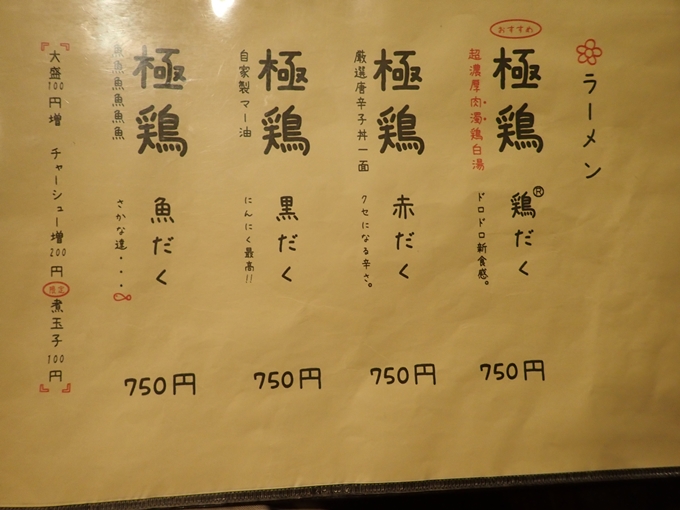 ラーメン
おすすめ
極鶏
超濃厚肉濁鶏白湯
鶏だく®
ドロドロ新食感。
750円
極鶏
厳選唐辛子丼一面
赤だく
クセになる辛さ。
750円
極鶏
自家製マー油
黒だく
にんにく最高!!
750円
極鶏
魚魚魚魚魚魚
魚だく
さかな達・・・∞
750円
『大盛100円増 チャーシュー増200円 限定 煮玉子100円』